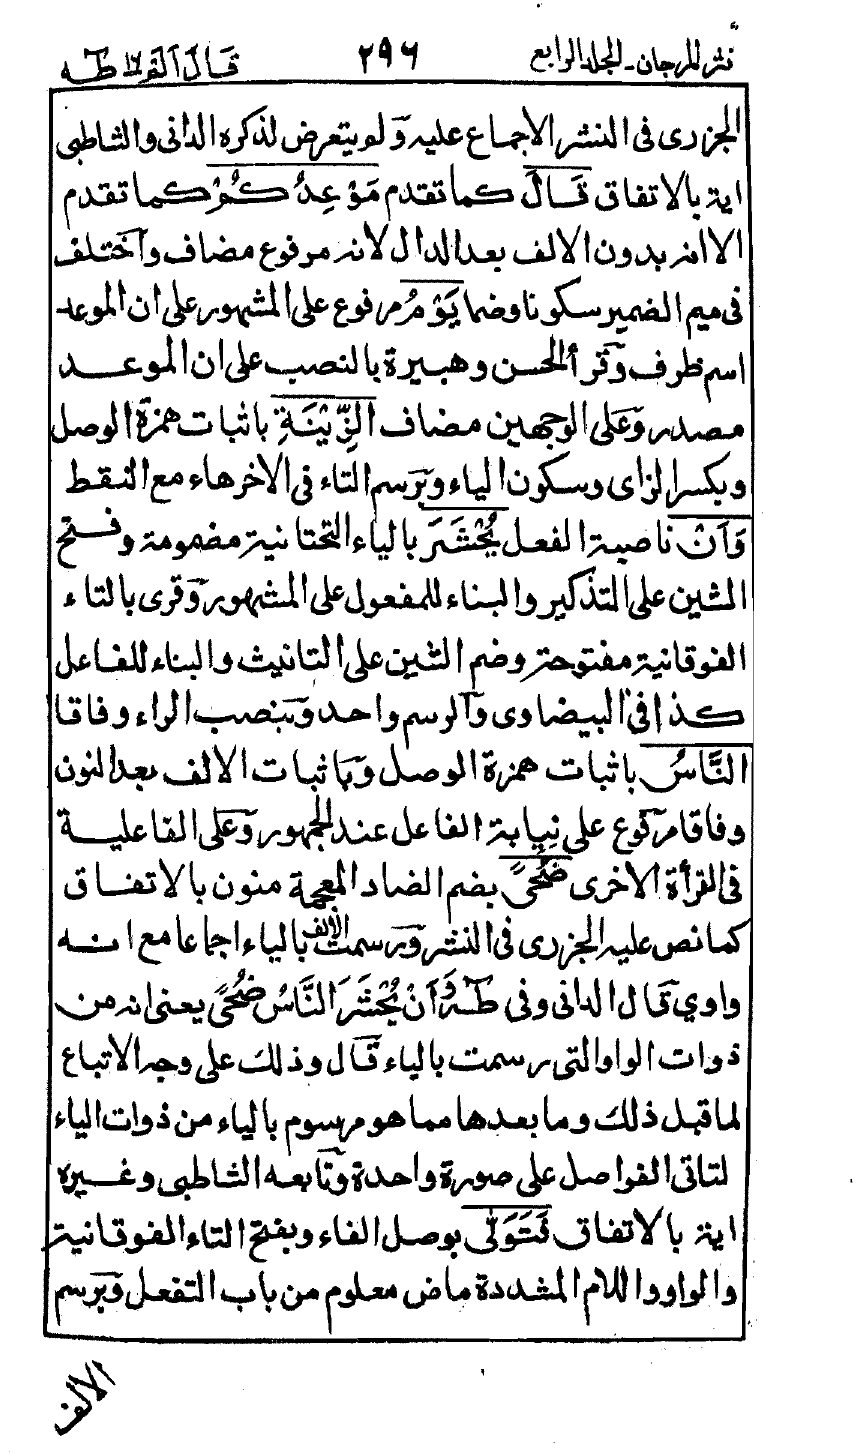 نثر المرجان - المجلد الرابع ٢٩٦ قال الم ١٦ طه
الجزری فی النشر الاجماع علیه ولم یتعرض لذکره الدانی والشاطبی
ایة بالاتفاق قَالَ کما تقدم مَوْعِدُكُمْ کما تقدم
الا انه بدون الالف بعد الدال لانه مرفوع مضاف واختلف
فی میم الضمیر سکونا وضما یَوْمُ مرفوع علی المشهور علی ان الموعد
اسم ظرف وقرأ الحسن وهبیرة بالنصب علی ان الموعد
مصدر وعلی الوجهین مضاف الزِّیْنَةِ باثبات همزة الوصل
وبکسر الزای وسکون الیاء وبرسم التاء فی الاخر هاء مع النقط
وَاَنْ ناصبة الفعل یُّحْشَرَ بالیاء التحتانیة مضمومة وفتح
الشین علی التذکیر والبناء للمفعول علی المشهور وقری بالتاء
الفوقانیة مفتوحة وضم الشین علی التانیث والبناء للفاعل
کذا فی البیضاوی والرسم واحد وبنصب الراء وفاقا
النَّاسُ باثبات همزة الوصل وباثبات الالف بعد النون
وفاقا مرفوع علی نیابة الفاعل عند الجمهور وعلی الفاعلیة
فی القرأة الاخری ضُحًی بضم الضاد المعجمة منون بالاتفاق
کما نص علیه الجزری فی النشر ورسمت الالف بالیاء اجماعا مع انه
واوی قال الدانی وفی طٰهٰ وَاَنْ یُّحْشَرَ النَّاسُ ضُحًی یعنی انه من
ذوات الواو التی رسمت بالیاء قال وذلك علی وجه الاتباع
لما قبل ذلك وما بعدها مما هو مرسوم بالیاء من ذوات الیاء
لتاتی الفواصل علی صورة واحدة وتابعه الشاطبی وغیره
ایة بالاتفاق فَتَوَلّٰی بوصل الفاء وبفتح التاء الفوقانیة
والواو واللام المشددة ماض معلوم من باب التفعل وبرسم
الالف